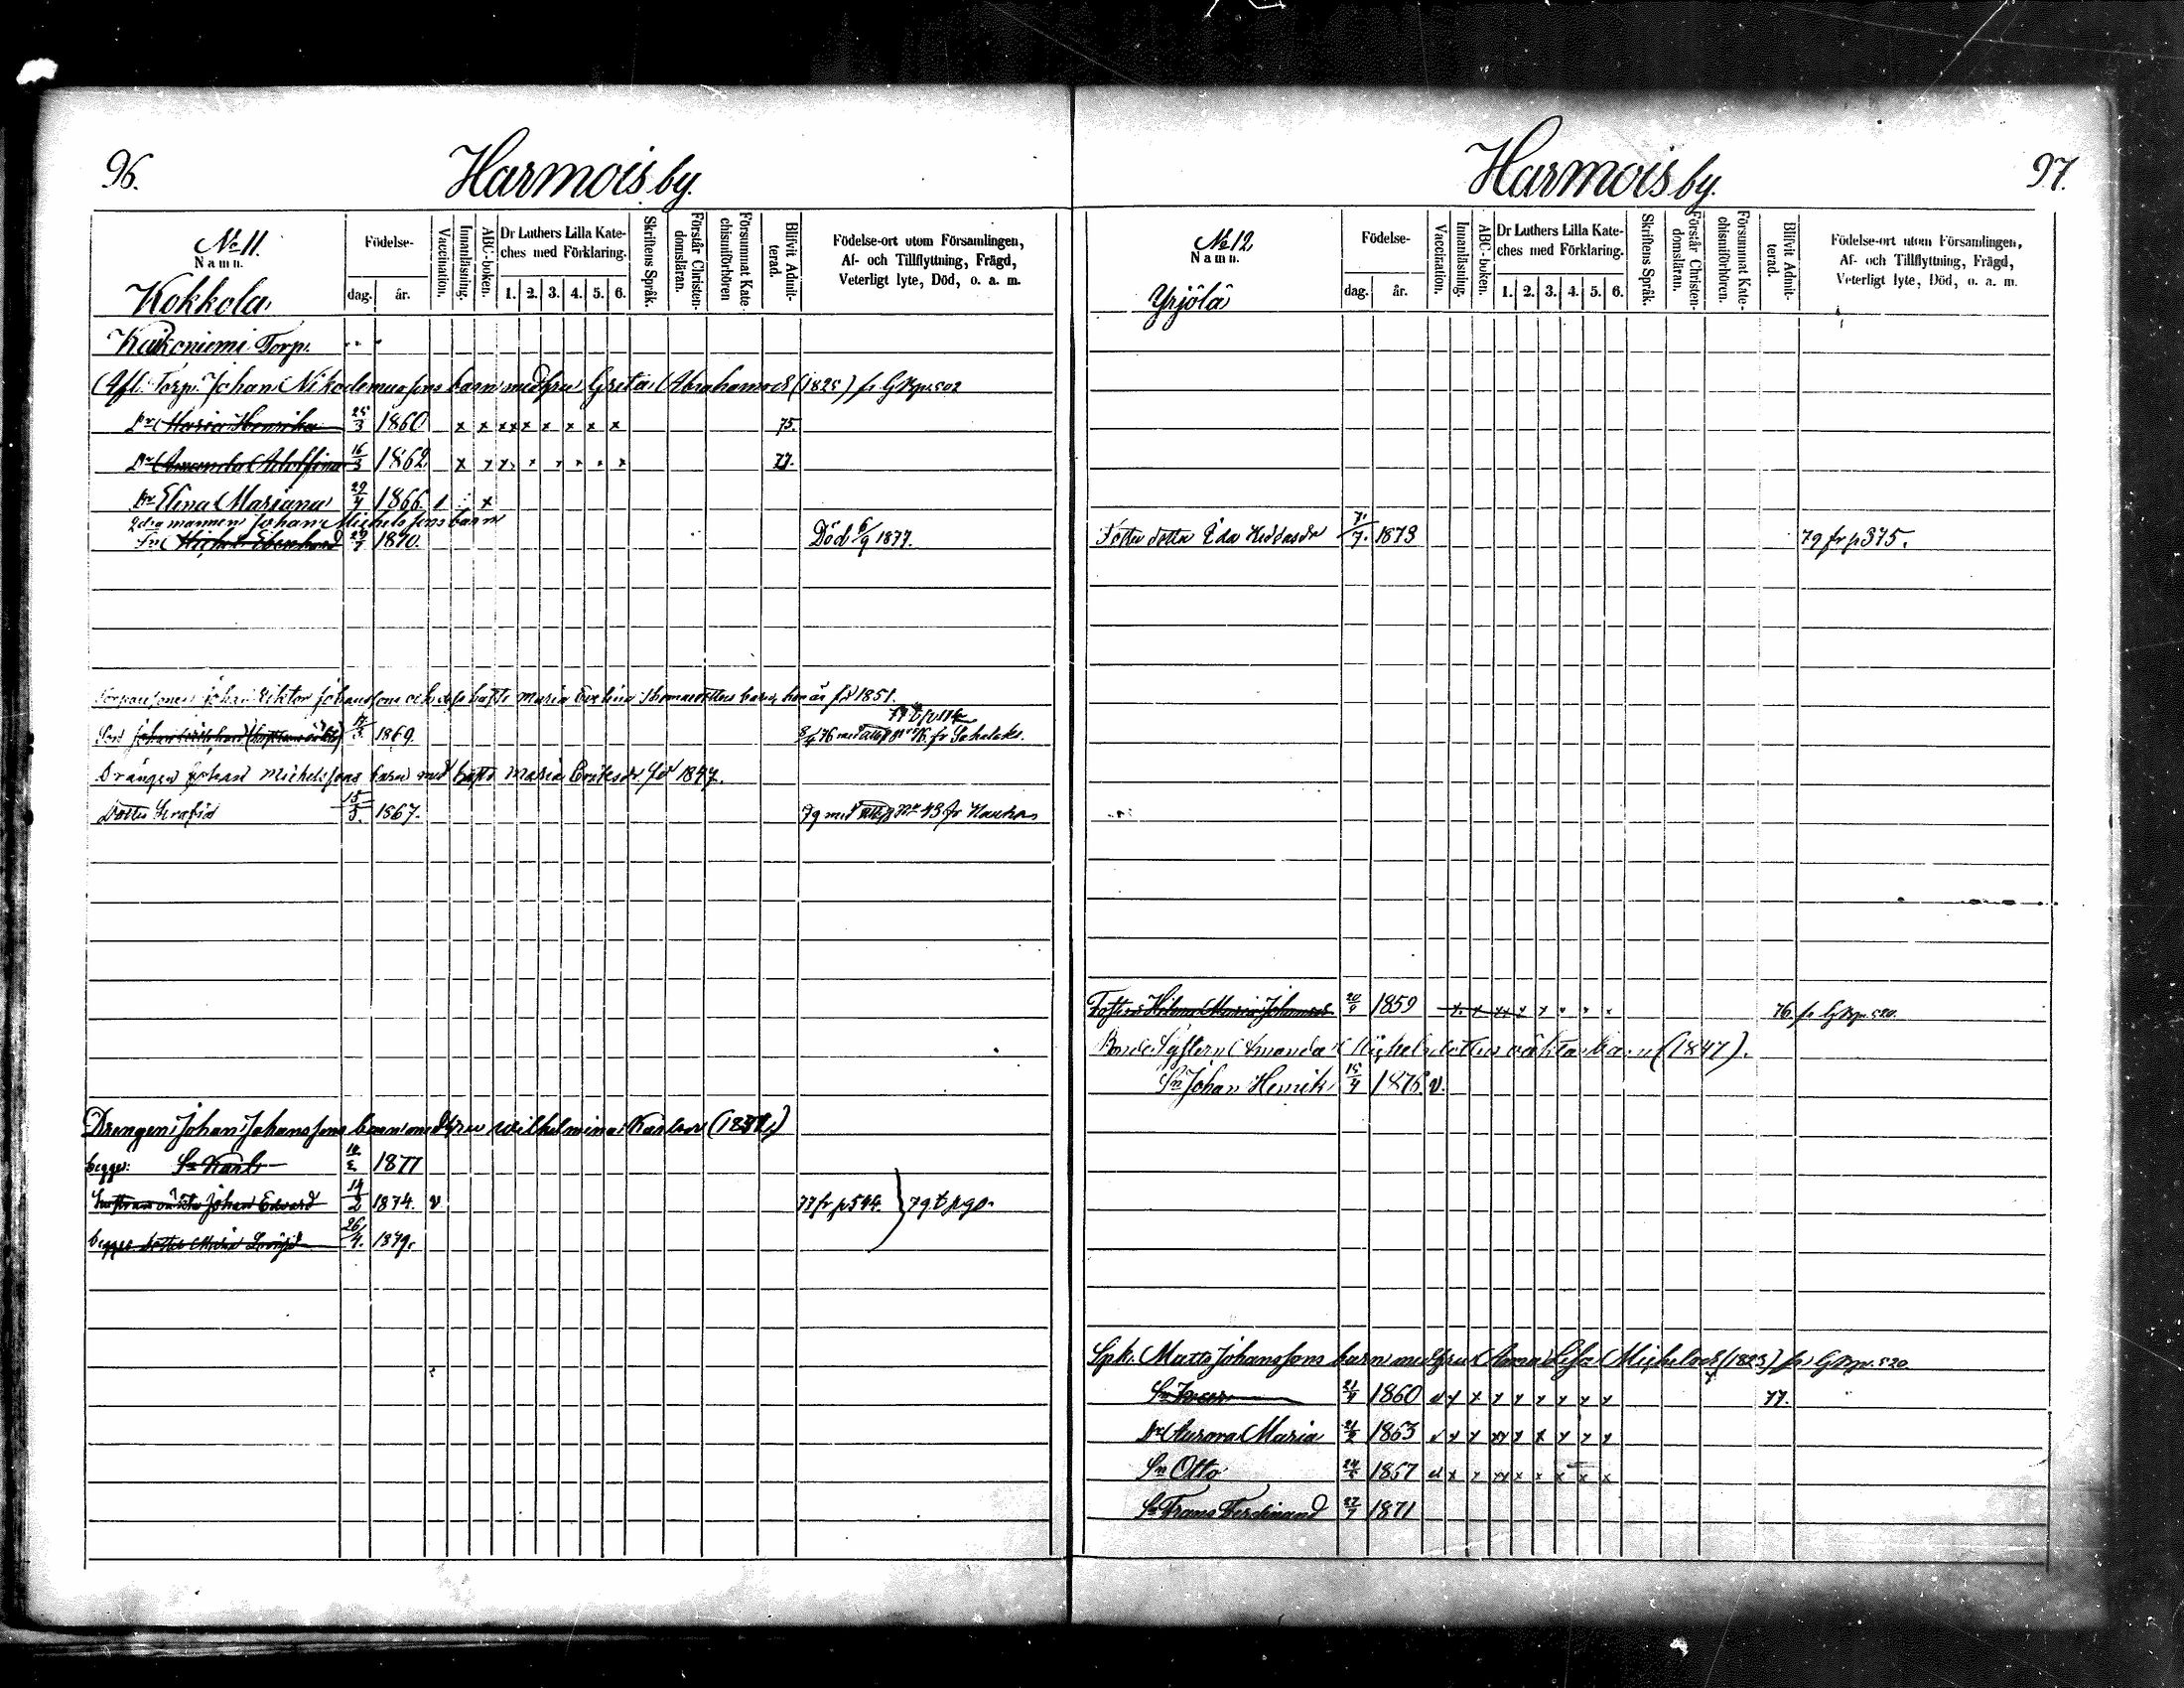 96.
Harmois by.
No 11.
Namn.
Kokkola
Födelse-
dag. år.
Vaccination.
Innanläsning.
ABC-boken.
Dr Luthers Lilla Kate-
ches med Förklaring.
1. 2. 3. 4. 5. 6.
Skriftens Språk.
Förstår Christen-
domsläran.
Försummat Kate
chismiförhören
Blifvit Admit-
terad.
Födelse-ort utom Församlingen,
Af- och Tillflyttning, Frägd,
Veterligt lyte, Död, o. a. m.
Torp.
Afl. Torp. Johan Nikodemussons barn med hru Greta Abrahamsdr (1825) fr GBpn502
Dr Maria Henrika 25/3 1860 x x xx x x x x x 75.
Dr Amanda Adolfina 16/3 1862 x x x x x x x x 77.
Dr Elina Mariana 29/4 1866 x
2dra mannen Johan Michelssons barn
Sn Michel Ebenhard 29/7 1870. Död 6/9 1877.
Johan Viktor Johanssons och dess hustr Maria Evelina Thomasdotters barn, hon är fd 1851.
1869. 8/4 76 med att No 76. fr Sahalaks.
Drängen Johan Michelssons barn med hustr Maria Eriksdr. fd 1847.
Dotter Serafia 15/5. 1867. 79 med att No 43 fr Hauhos
Drengen Johan Johanssons barn med hru Wilhelmina Karlsdr
begges: Sn Karl 1877
Johan Edward 14/2 1874. v 77 fr p 544. } 79 t p 90.
begges dotter Maria 26/4. 1879.
Harmois by.
97.
No 12.
Namn.
Yrjölä
Födelse-
dag. år.
Vaccination.
Innanläsning.
ABC-boken.
Dr Luthers Lilla Kate-
ches med Förklaring.
1. 2. 3. 4. 5. 6.
Skriftens Språk.
Förstår Christen-
domsläran.
Försummat Kate-
chismiförhören.
Blifvit Admit-
terad.
Födelse-ort utom Församlingen,
Af- och Tillflyttning, Frägd,
Veterligt lyte, Död, o. a. m.
Foster dotter Ida 7./7. 1873 79 fr p 375.
Fosterd Maria Johansdr 20/9 1859 x x xx x x x x x 76. fr GBpn 520.
Amanda Michelsdotters oäkta barn (1847).
Sn Johan Henrik 15/4 1876. v.
Spk. Matts Johanssons barn med hru Anna Lisa Michelsdr (1823) fr GBpn 520
Sn 21/9 1860 v x x x x x x x x 77.
Dr Aurora Maria 21/2 1863 v x x xx x x x x x
Sn Otto 1867 v x x xx x x x x x
Sn Frans Ferdinand 27/7 1871